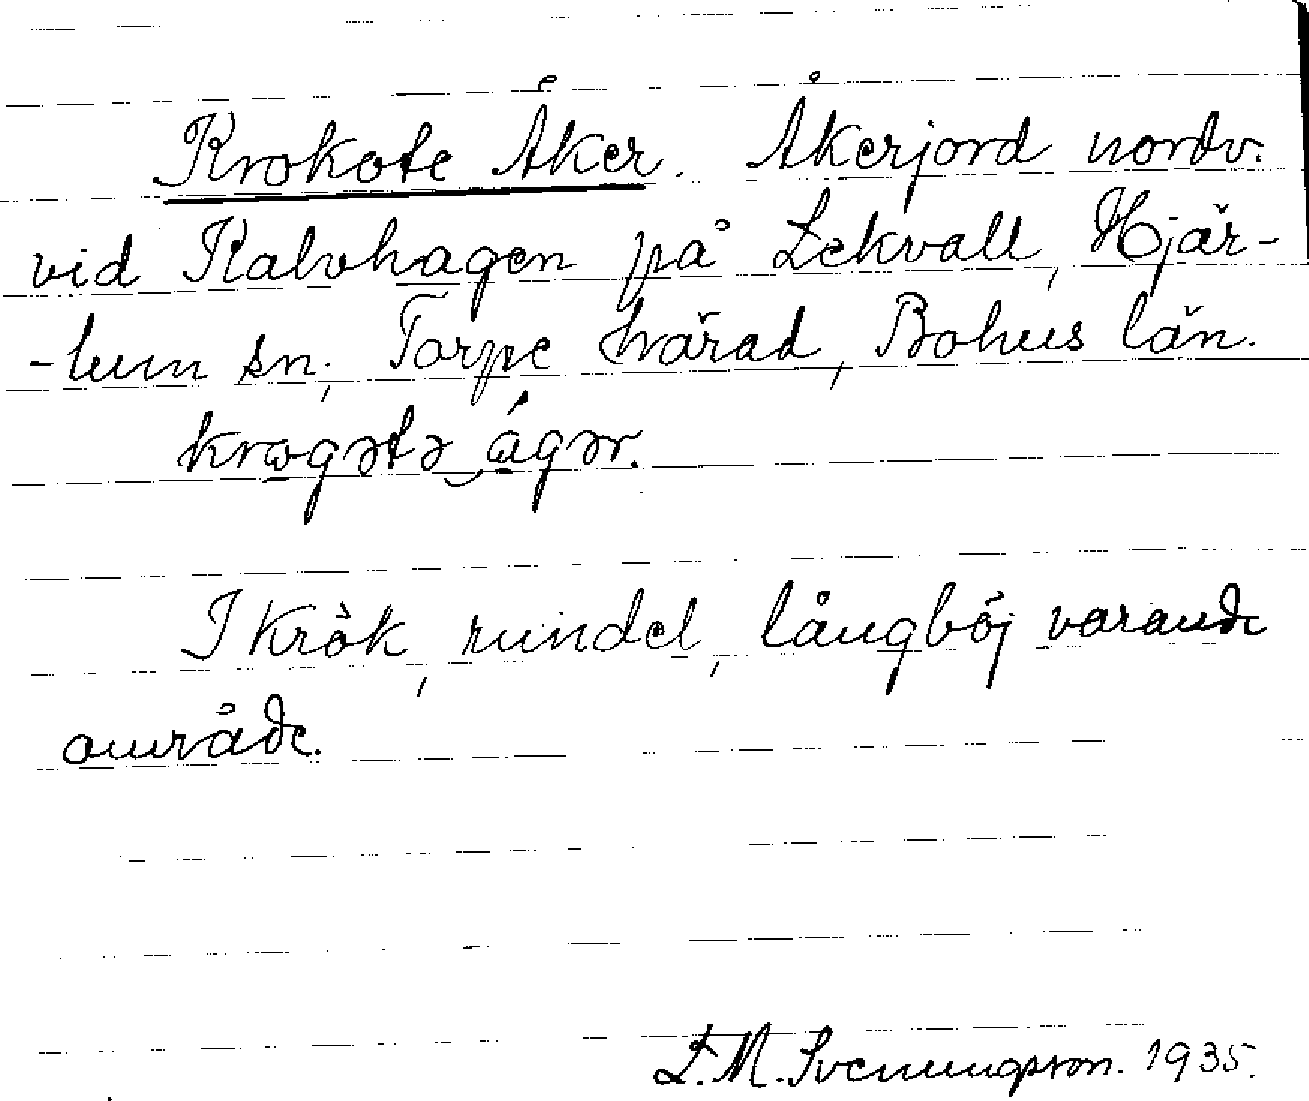 Krokote Åker. Åkerjord nordv.
vid Kalvhagen på Lekvall, Hjär-
-tum sn, Torpe härad, Bohus län.
krogətə ágər.
I krök, rundel, långböj varande
område.
L. M. Svenungsson. 1935.